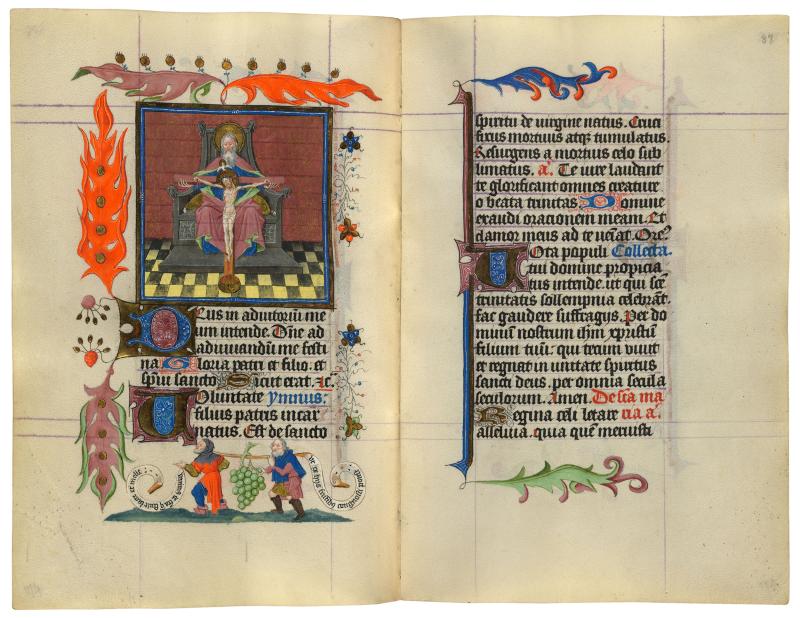 Deus in adiutoriū me
um intende. Dn̄e ad
adiuuandū me festi
na Gloria patri et filio. et
sp̄ui sancto Sicut erat.
Uoluntate ymnus:
filius patris incar
natus. Est de sancto
lacte et melle
ut ex hijs fructibꝫ cognosci potest
87
spiritu de uirgine natus. Cruci
fixus mortuus atqꝫ tumulatus.
Resurgens a mortuis celo sub
limatus. a. Te iure laudant
te glorificant omnes creature
o beata trinitas Domine
exaudi oracionem meam. Et
clamor meus ad te ueīat. Ore᷒
Uota populi Collecta.
tui domine propicia
tus intende. ut qui scē
trinitatis sollempnia celebrāt.
fac gaudere suffragijs. Per do
minum nostrum ih̄m xpristū
filium tuū: qui tecum viuit
et regnat in unitate spiritus
sancti deus. per omnia secula
seculorum. Amen. De scā ma
Regina celi letare ria a.
alleluia. quia quē meruisti